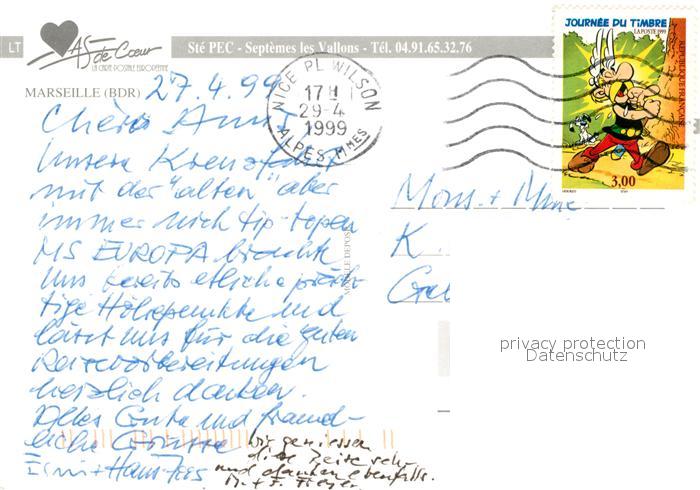 LT
AS de Cœur
LA CARTE POSTALE EUROPÉENNE
Sté PEC - Septèmes les Vallons - Tél. 04.91.65.32.76
MARSEILLE (BDR)
27.4.99
NICE PL WILSON
17H
29-4
1999
ALPES MMES
JOURNÉE DU TIMBRE
LA POSTE 1999
RÉPUBLIQUE FRANÇAISE
3,00
Unsere Kreuzfahrt
mit der "alten" aber
immer noch tip-topen
MS EUROPA brachte
uns bereits etliche präch-
tige Höhepunkte und
lässt uns für die guten
Reisevorbereitungen
herzlich danken.
Alles Gute und freund-
liche Grüsse
wir geniessen
diese Reise sehr
und danken ebenfalls.
Mons. + Mme
K.
privacy protection
Datenschutz